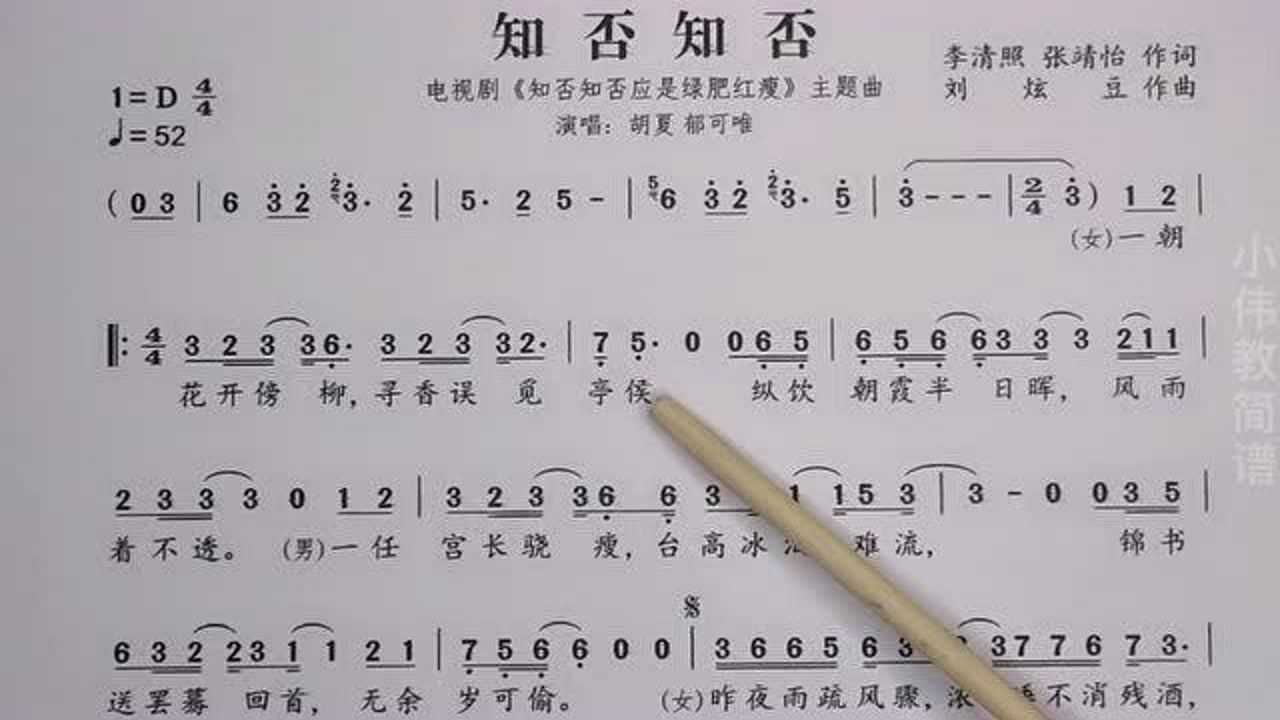 知否知否
李清照 张靖怡 作词
1= D 4/4
电视剧《知否知否应是绿肥红瘦》主题曲
刘炫豆 作曲
♩= 52
演唱：胡夏 郁可唯
( 0 3 | 6 3 2 2 3· 2 | 5· 2 5 - | 5 6 3 2 2 3· 5 | 3 - - - | 2/4 3 ) 1 2 |
(女)一 朝
‖: 4/4 3 2 3 3 6· 3 2 3 3 2· | 7 5· 0 0 6 5 | 6 5 6 6 3 3 3 2 1 1 |
花 开 傍 柳，寻 香 误 觅 亭 侯 纵 饮 朝 霞 半 日 晖， 风 雨
2 3 3 3 0 1 2 | 3 2 3 3 6 6 3 1 1 5 3 | 3 - 0 0 3 5 |
着 不 透。 (男)一 任 宫 长 骁 瘦，台 高 冰 难 流， 锦 书
𝄋
6 3 2 2 3 1 1 2 1 | 7 5 6 6 0 0 | 3 6 6 5 6 3 3 7 7 6 7 3· |
送 罢 蓦 回 首， 无 余 岁 可 偷。 (女)昨 夜 雨 疏 风 骤，浓 不 消 残 酒，
小伟教简谱